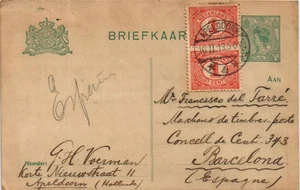 BRIEFKAART
AAN
Mr. Francisco del Tarré,
Marchand de timbres-poste
Concell de Cent. 343
Barcelona
(Espagne)
G. H. Voerman
Korte Nieuwstraat 11
Apeldoorn (Hollande)